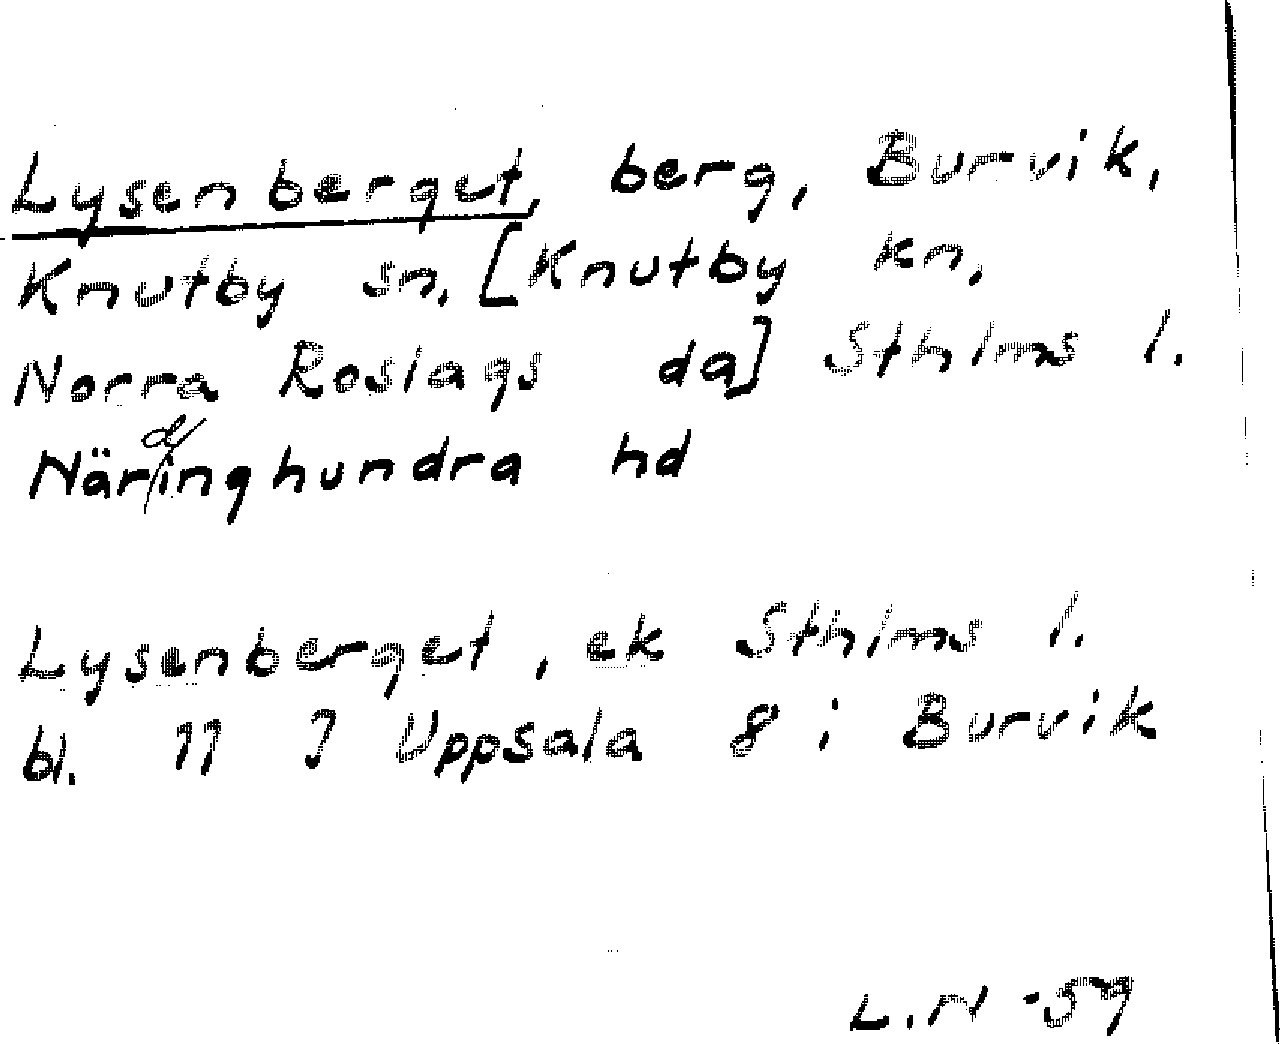 Lysenberget, berg, Burvik,
Knutby sn. [Knutby kn,
Norra Roslags da] Sthlms l.
Närdinghundra hd
Lysenberget, ek Sthlms l.
bl. 11 J Uppsala 8 i Burvik
L.N -59